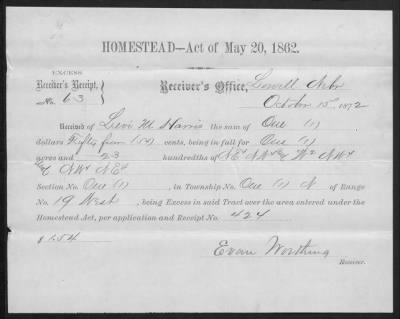 HOMESTEAD—Act of May 20, 1862.
EXCESS
Receiver's Receipt,
No. 63
Receiver's Office, Lowell Nebr
October 15th 1872
Received of Levi M Harris the sum of One (1)
dollars Fifty four (54) cents, being in full for One (1)
acres and 23 hundredths of NE¼ NW¼ W½ NW¼
& NW¼ NE¼
Section No. One (1), in Township No. One (1) N of Range
No. 19 West, being Excess in said Tract over the area entered under the
Homestead Act, per application and Receipt No. 424
$ 1.54
Evan Worthing
Receiver.